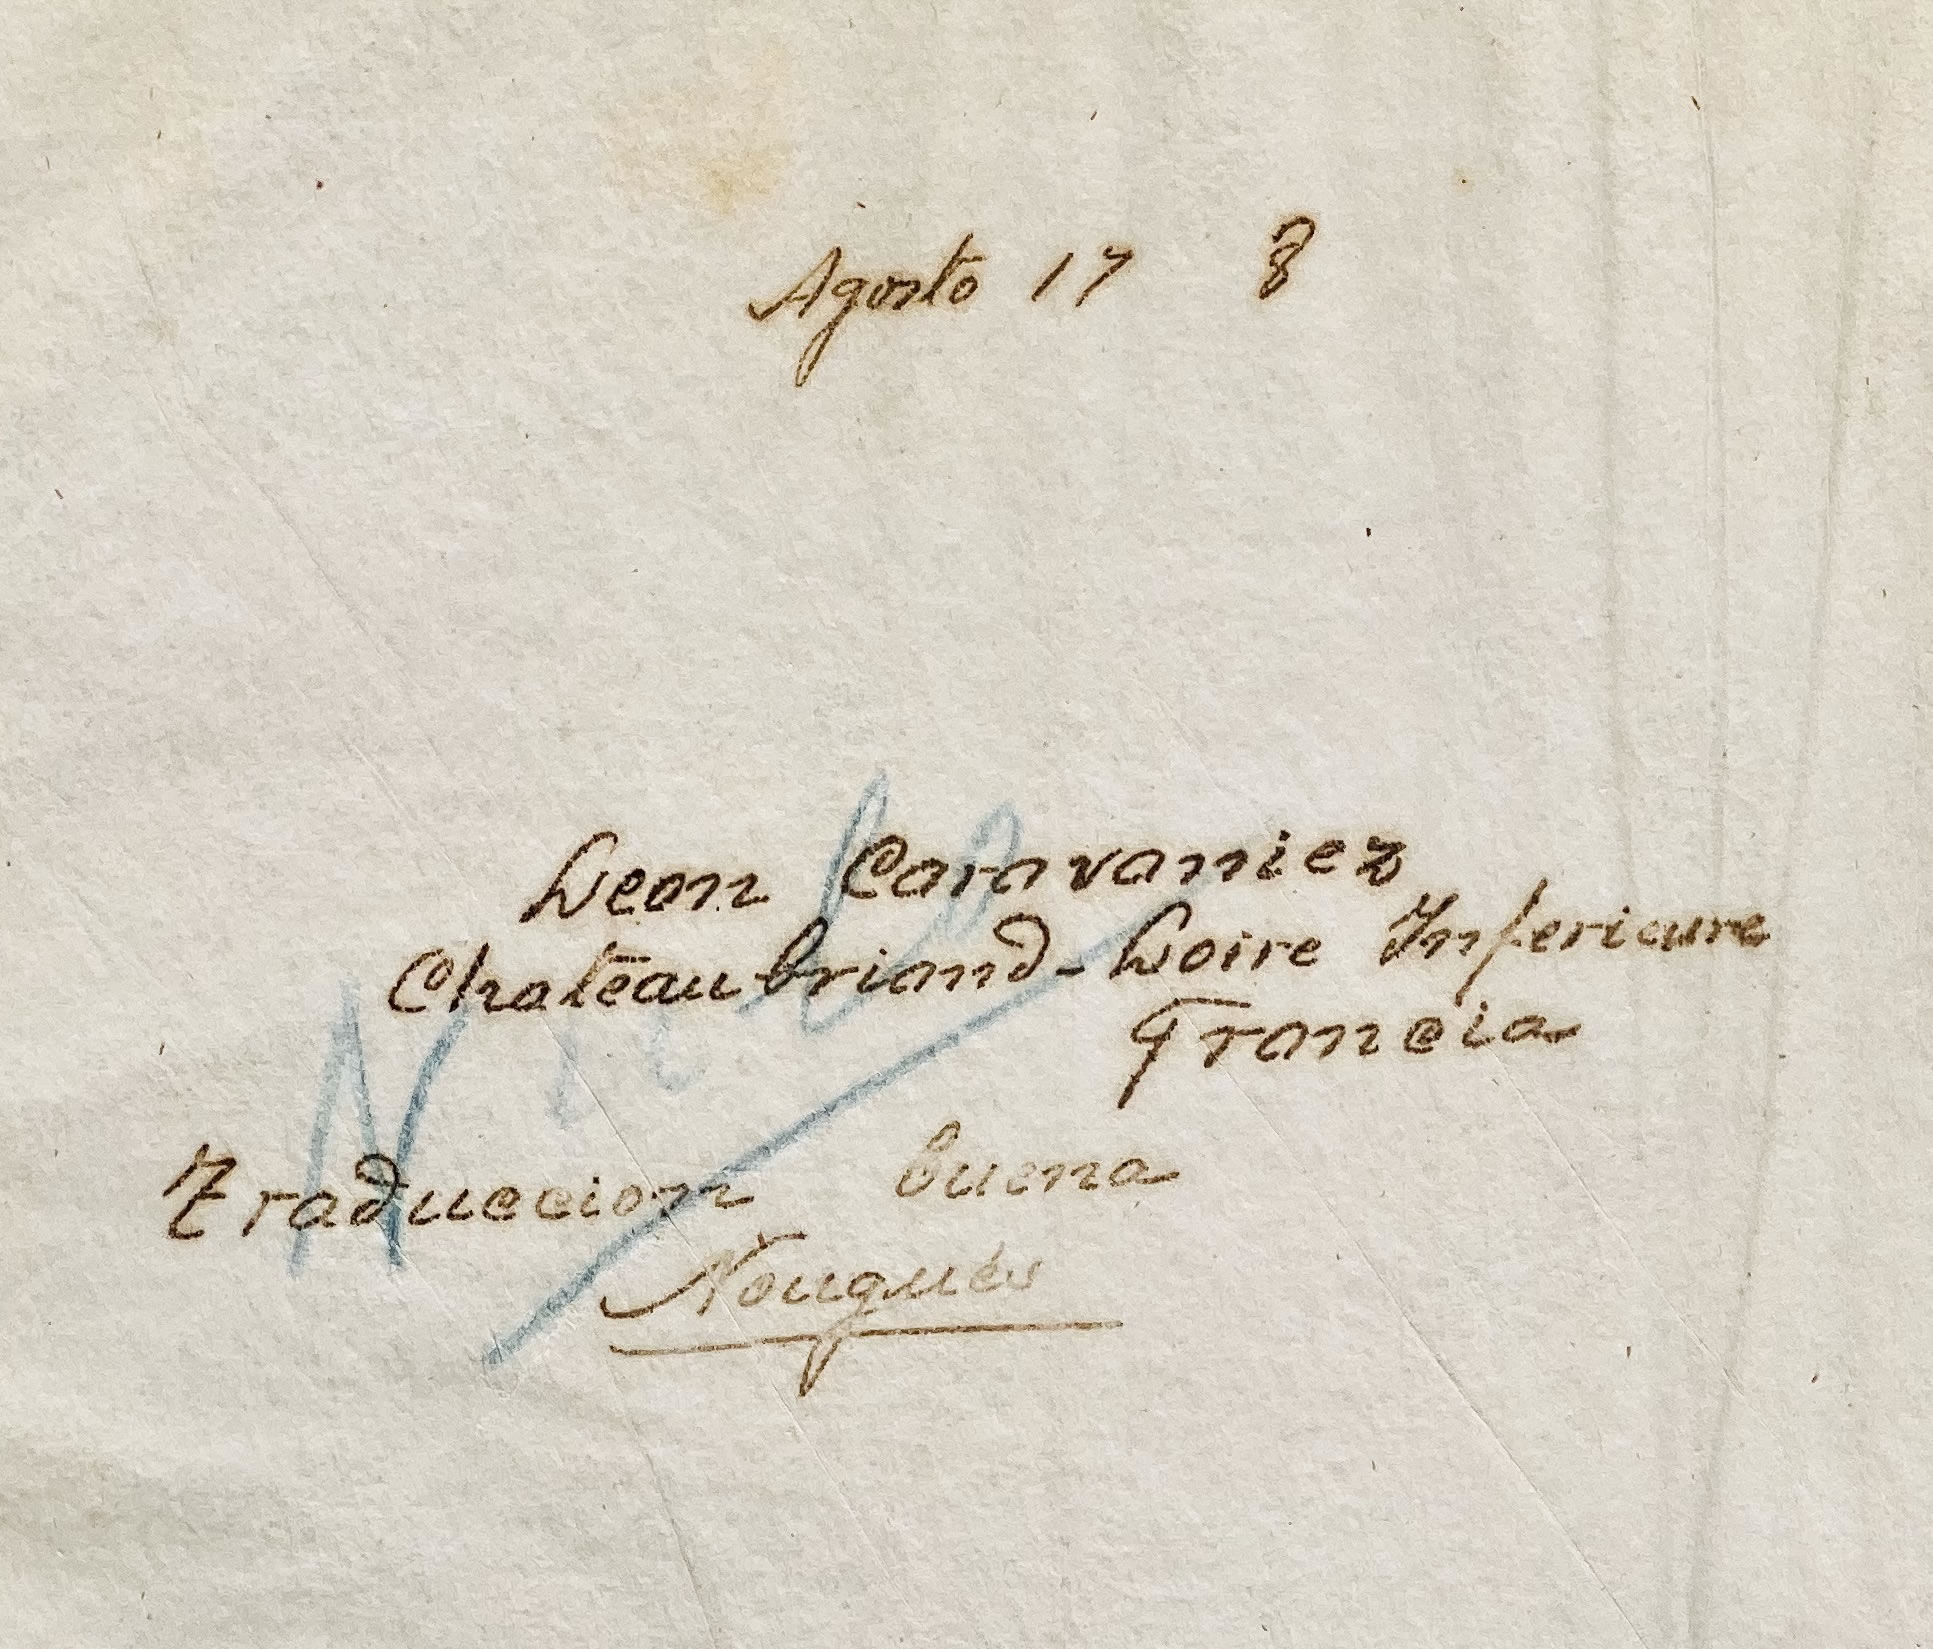 Agosto 17 8
Leon Caravaniez
Chateaubriand - Loire Inferieure
Francia
Traduccion buena
Nougués